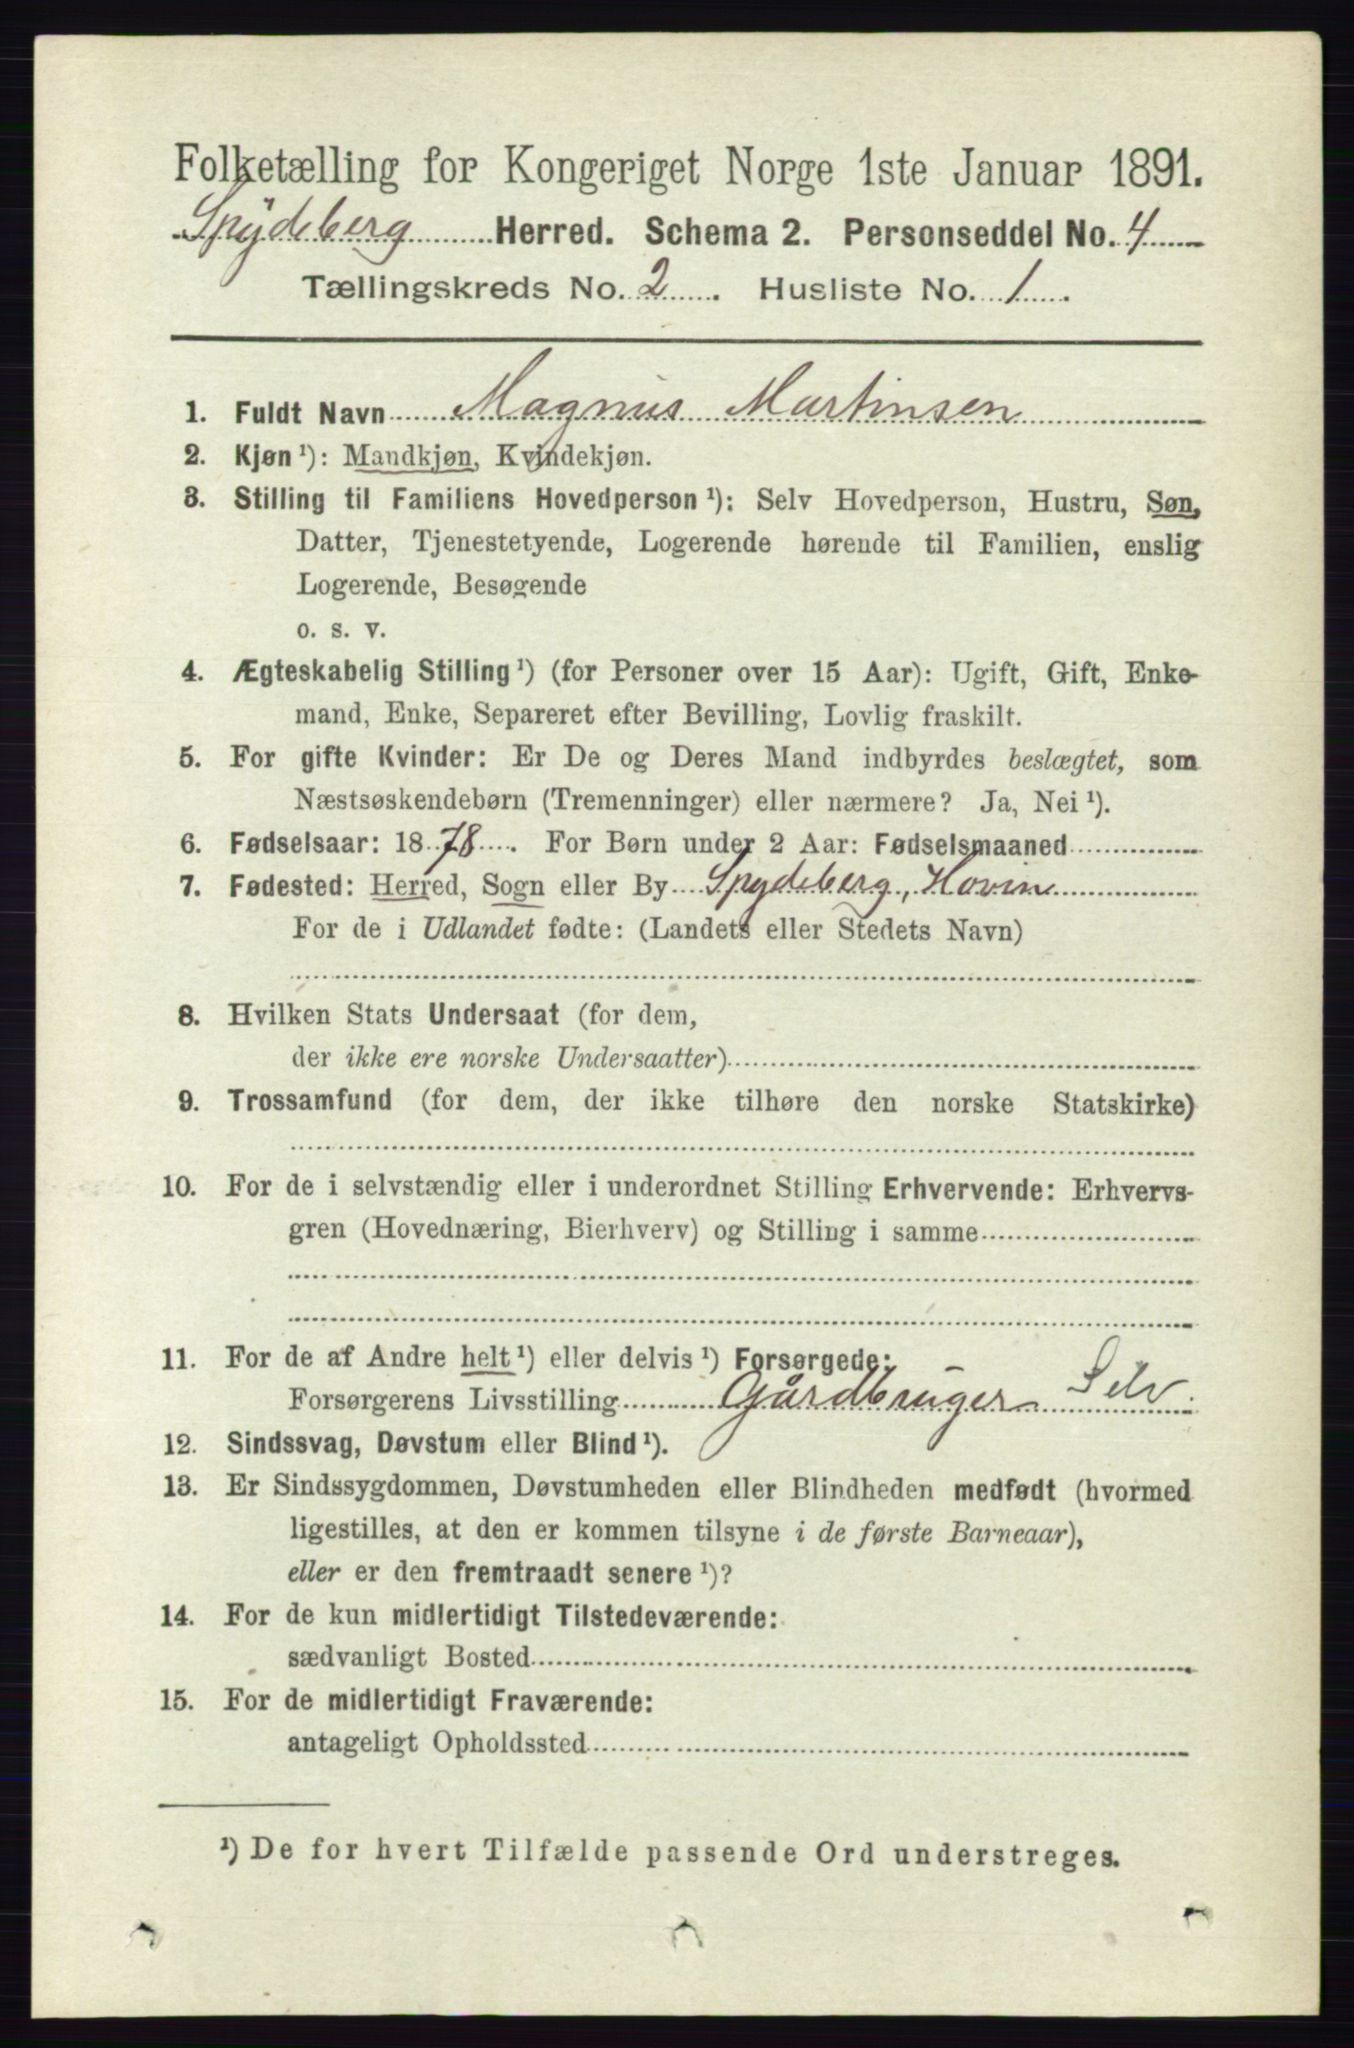 Folketælling for Kongeriget Norge 1ste Januar 1891.
Spydeberg Herred. Schema 2. Personseddel No. 4
Tællingskreds No. 2. Husliste No. 1.
1. Fuldt Navn Magnus Martinsen
2. Kjøn ¹): Mandkjøn, Kvindekjøn.
3. Stilling til Familiens Hovedperson ¹): Selv Hovedperson, Hustru, Søn,
Datter, Tjenestetyende, Logerende hørende til Familien, enslig
Logerende, Besøgende
o. s. v.
4. Ægteskabelig Stilling ¹) (for Personer over 15 Aar): Ugift, Gift, Enke-
mand, Enke, Separeret efter Bevilling, Lovlig fraskilt.
5. For gifte Kvinder: Er De og Deres Mand indbyrdes beslægtet, som
Næstsøskendebørn (Tremenninger) eller nærmere? Ja, Nei ¹).
6. Fødselsaar: 1878. For Børn under 2 Aar: Fødselsmaaned
7. Fødested: Herred, Sogn eller By Spydeberg, Hovin
For de i Udlandet fødte: (Landets eller Stedets Navn)
8. Hvilken Stats Undersaat (for dem,
der ikke ere norske Undersaatter)
9. Trossamfund (for dem, der ikke tilhøre den norske Statskirke)
10. For de i selvstændig eller i underordnet Stilling Erhvervende: Erhvervs-
gren (Hovednæring, Bierhverv) og Stilling i samme
11. For de af Andre helt ¹) eller delvis ¹) Forsørgede:
Forsørgerens Livsstilling Gårdbruger Selv.
12. Sindssvag, Døvstum eller Blind ¹).
13. Er Sindssygdommen, Døvstumheden eller Blindheden medfødt (hvormed
ligestilles, at den er kommen tilsyne i de første Barneaar),
eller er den fremtraadt senere ¹)?
14. For de kun midlertidigt Tilstedeværende:
sædvanligt Bosted
15. For de midlertidigt Fraværende:
antageligt Opholdssted
¹) De for hvert Tilfælde passende Ord understreges.